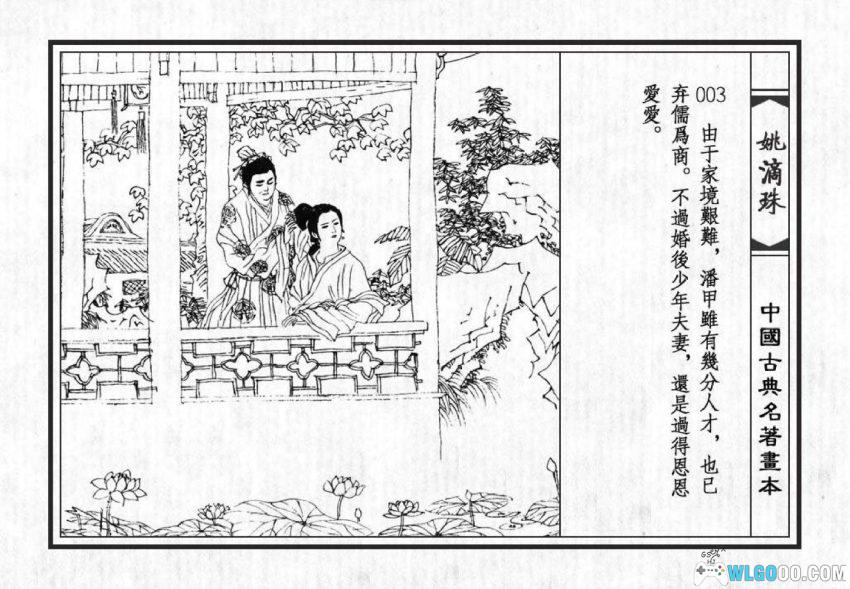 姚滴珠
中國古典名著畫本
003 由于家境艱難，潘甲雖有幾分人才，也已
弃儒爲商。不過婚後少年夫妻，還是過得恩恩
愛愛。
WLGOOO.COM